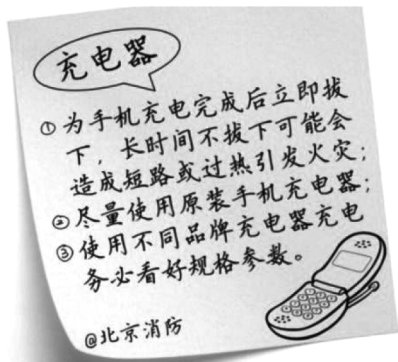 充电器
①为手机充电完成后立即拔
下，长时间不拔下可能会
造成短路或过热引发火灾；
②尽量使用原装手机充电器；
③使用不同品牌充电器充电
务必看好规格参数。
@北京消防